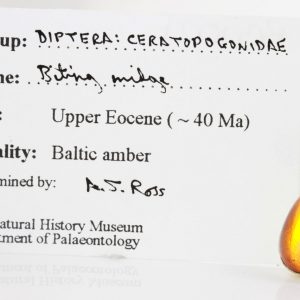 up: DIPTERA: CERATOPOGONIDAE
ne: Biting midge
: Upper Eocene (~ 40 Ma)
ality: Baltic amber
mined by: A.J. Ross
atural History Museum
tment of Palaeontology